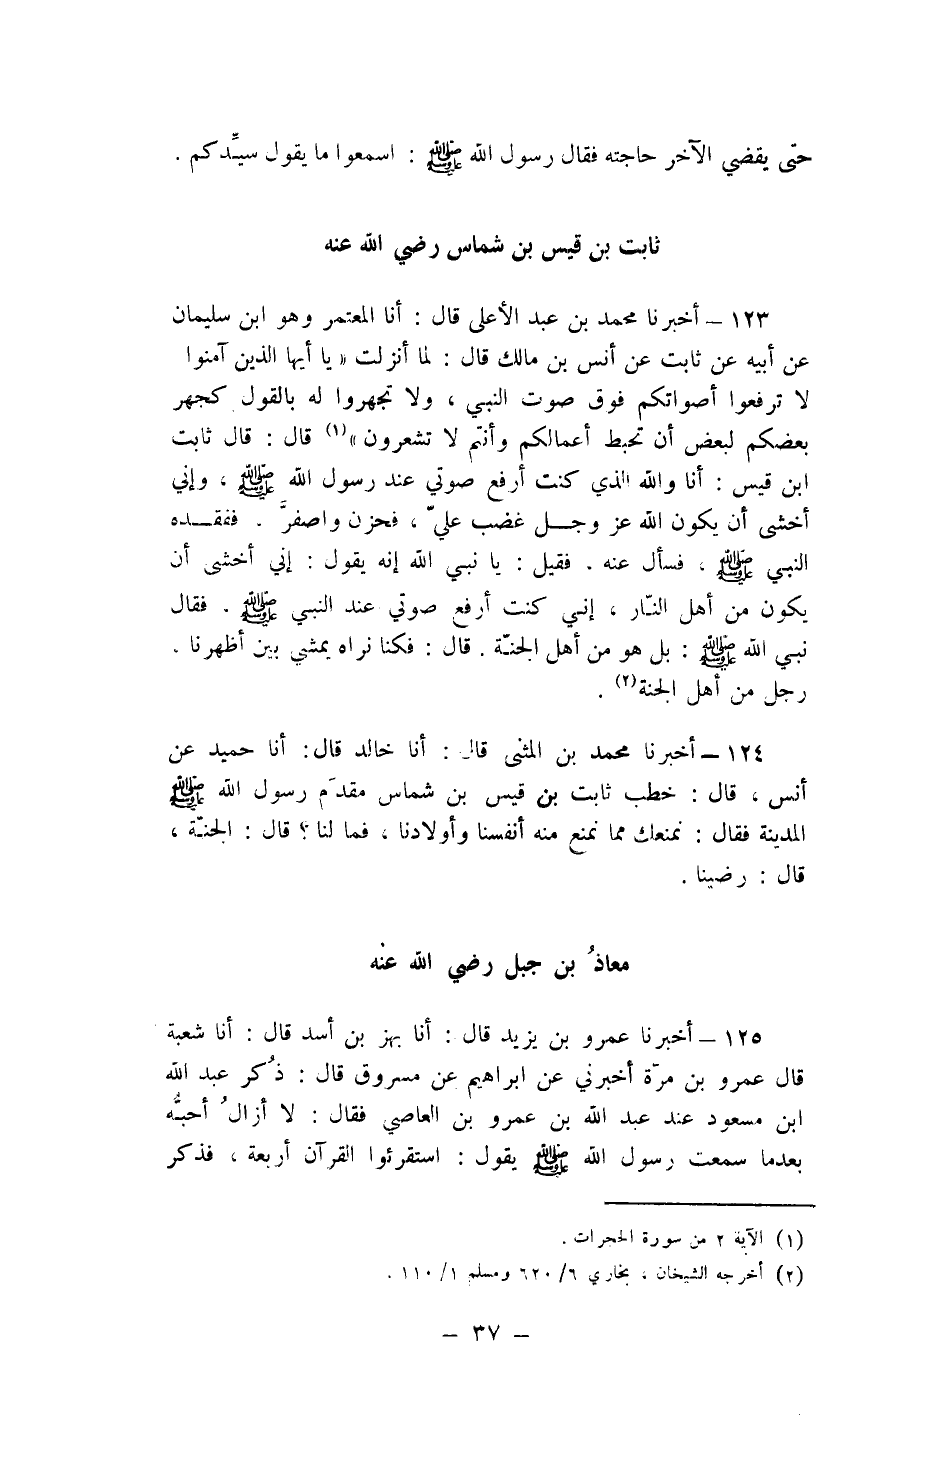 حتّى يقضي الآخر حاجته فقال رسول الله ﷺ : اسمعوا ما يقول سيّدكم .
ثابت بن قيس بن شماس رضي الله عنه
١٢٣ – أخبرنا محمد بن عبد الأعلى قال : أنا المعتمر وهو ابن سليمان
عن أبيه عن ثابت عن أنس بن مالك قال : لما أنزلت « يا أيها الذين آمنوا
لا ترفعوا أصواتكم فوق صوت النبي ، ولا تجهروا له بالقول كجهر
بعضكم لبعض أن تحبط أعمالكم وأنتم لا تشعرون »(١) قال : قال ثابت
ابن قيس : أنا والله الذي كنت أرفع صوتي عند رسول الله ﷺ ، وإني
أخشى أن يكون الله عز وجل غضب عليّ ، فحزن واصفرَّ . ففقده
النبي ﷺ ، فسأل عنه . فقيل : يا نبي الله إنه يقول : إني أخشى أن
يكون من أهل النّار ، إني كنت أرفع صوتي عند النبي ﷺ . فقال
نبي الله ﷺ : بل هو من أهل الجنّة . قال : فكنا نراه يمشي بين أظهرنا .
رجل من أهل الجنة(٢) .
١٢٤ – أخبرنا محمد بن المثنى قال : أنا خالد قال : أنا حميد عن
أنس ، قال : خطب ثابت بن قيس بن شماس مقدَم رسول الله ﷺ
المدينة فقال : نمنعك مما نمنع منه أنفسنا وأولادنا ، فما لنا ؟ قال : الجنّة ،
قال : رضينا .
معاذُ بن جبل رضي الله عنه
١٢٥ – أخبرنا عمرو بن يزيد قال : أنا بهز بن أسد قال : أنا شعبة
قال عمرو بن مرّة أخبرني عن ابراهيم عن مسروق قال : ذُكر عبد الله
ابن مسعود عند عبد الله بن عمرو بن العاصي فقال : لا أزالُ أحبُّه
بعدما سمعت رسول الله ﷺ يقول : استقرئوا القرآن أربعة ، فذكر
(١) الآية ٢ من سورة الحجرات .
(٢) أخرجه الشيخان ، بخاري ٦/ ٦٢٠ ومسلم ١/ ١١٠ .
– ٣٧ –